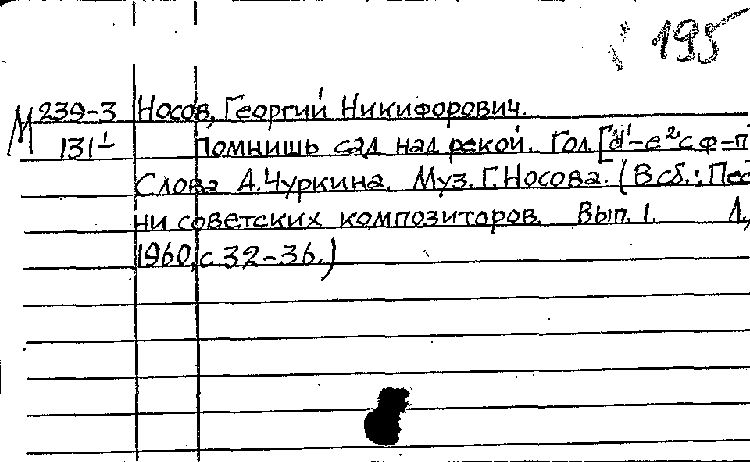 195
М 239-3 Носов, Георгий Никифорович.
131 Помнишь сад над рекой. Гол. [d¹-e² с ф=п
Слова А. Чуркина. Муз. Г. Носова. (В сб.: Пес
ни советских композиторов. Вып. 1. Л,
1960, с 32-36.)